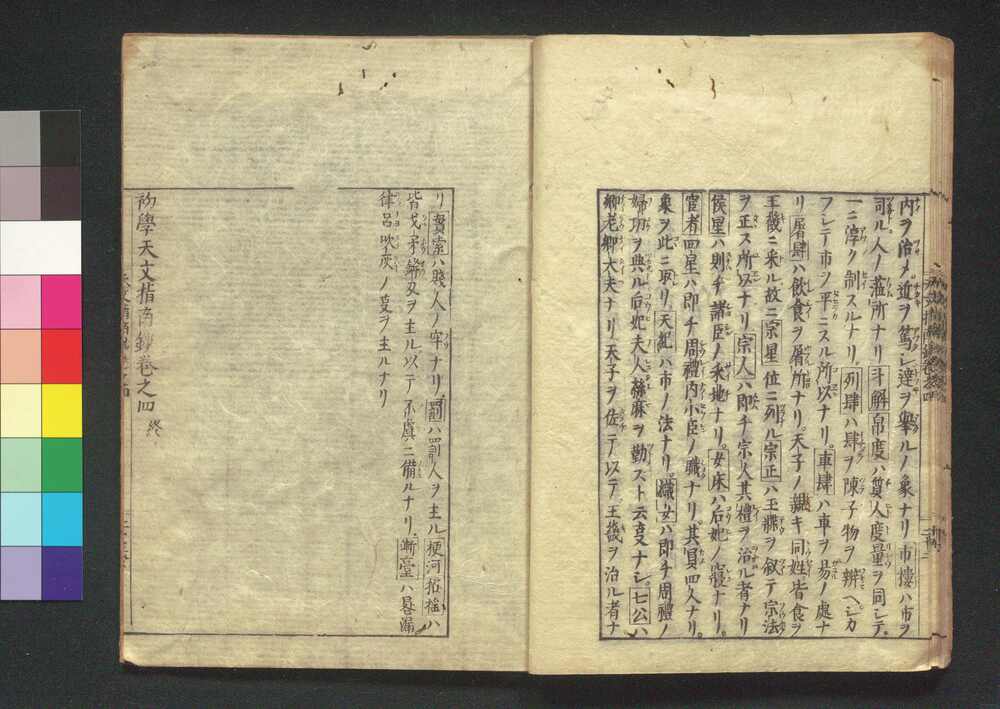 内ヲ治メ近ヲ篤シ達ヲ擧ルノ象ナリ市樓ハ市ヲ
司ル人ノ蒞所ナリ斗斛帛度ハ貿人度量ヲ同シテ
一ニ淳ク制スルナリ列肆ハ肆ヲ陳子物ヲ辨ヘシカ
フレテ市ヲ平ニスル所以ナリ車肆ハ車ヲ易ノ處ナ
リ屠肆ハ飲食ヲ屠所ナリ天子ノ親キ同姓皆食ヲ
王畿ニ采ル故ニ宗星位ニ列ル宗正ハ王牒ヲ叙テ宗法
ヲ正ス所以ナリ宗人ハ即チ宗人其禮ヲ治ル者ナリ
侯星ハ則チ諸臣ノ釆地ナリ女床ハ后妃ノ寢ナリ
宦者四星ハ即チ周禮内小臣ノ職ナリ其員四人ナリ
象ヲ此ニ取リ天紀ハ市ノ法ナリ織女ハ即チ周禮ノ
婦功ヲ典ル后妃夫人絲麻ヲ勤スト云フナシ七公ハ
卿老卿大夫ナリ天子ヲ佐テ以テ王畿ヲ治ル者ナ
リ貫索ハ賤人ノ牢ナリ罰ハ罰人ヲ主ル梗河招搖ハ
皆戈矛鋒刃ヲ主ル以テ不虞ニ備ルナリ漸臺ハ晷漏
律呂吹灰ノ変ヲ主ルナリ
初學天文指南鈔卷之四終